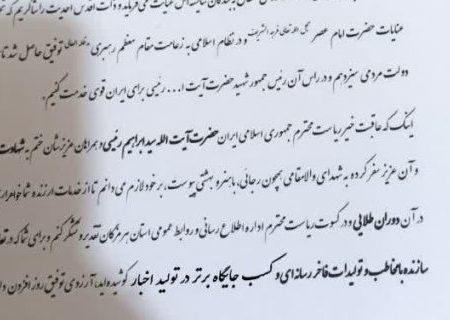 عنایات حضرت امام عصر عجل الله تعالی فرجه الشریف و در نظام اسلامی به زعامت مقام معظم رهبری توفیق حاصل شد تا
دولت مردمی سیزدهم و در راس آن رئیس جمهور شهید حضرت آیت ا... رئیسی برای ایران قوی خدمت کنیم.
اینک که عاقبت خیر ریاست محترم جمهوری اسلامی ایران حضرت آیت الله سید ابراهیم رئیسی و همراهان عزیزشان ختم به شهادت
و آن عزیز سفر کرده به شهدای والامقامی همچون رجائی، باهنر و بهشتی پیوست، بر خود لازم می دانم تا از خدمات ارزنده شما خواهر
در آن دوران طلایی و در کسوت ریاست محترم اداره اطلاع رسانی و روابط عمومی استان هرمزگان تقدیر و تشکر کنم و برای شما که در
سازنده با مخاطب و تولیدات فاخر رسانه ای و کسب جایگاه برتر در تولید اخبار کوشیده اید، آرزوی توفیق روز افزون